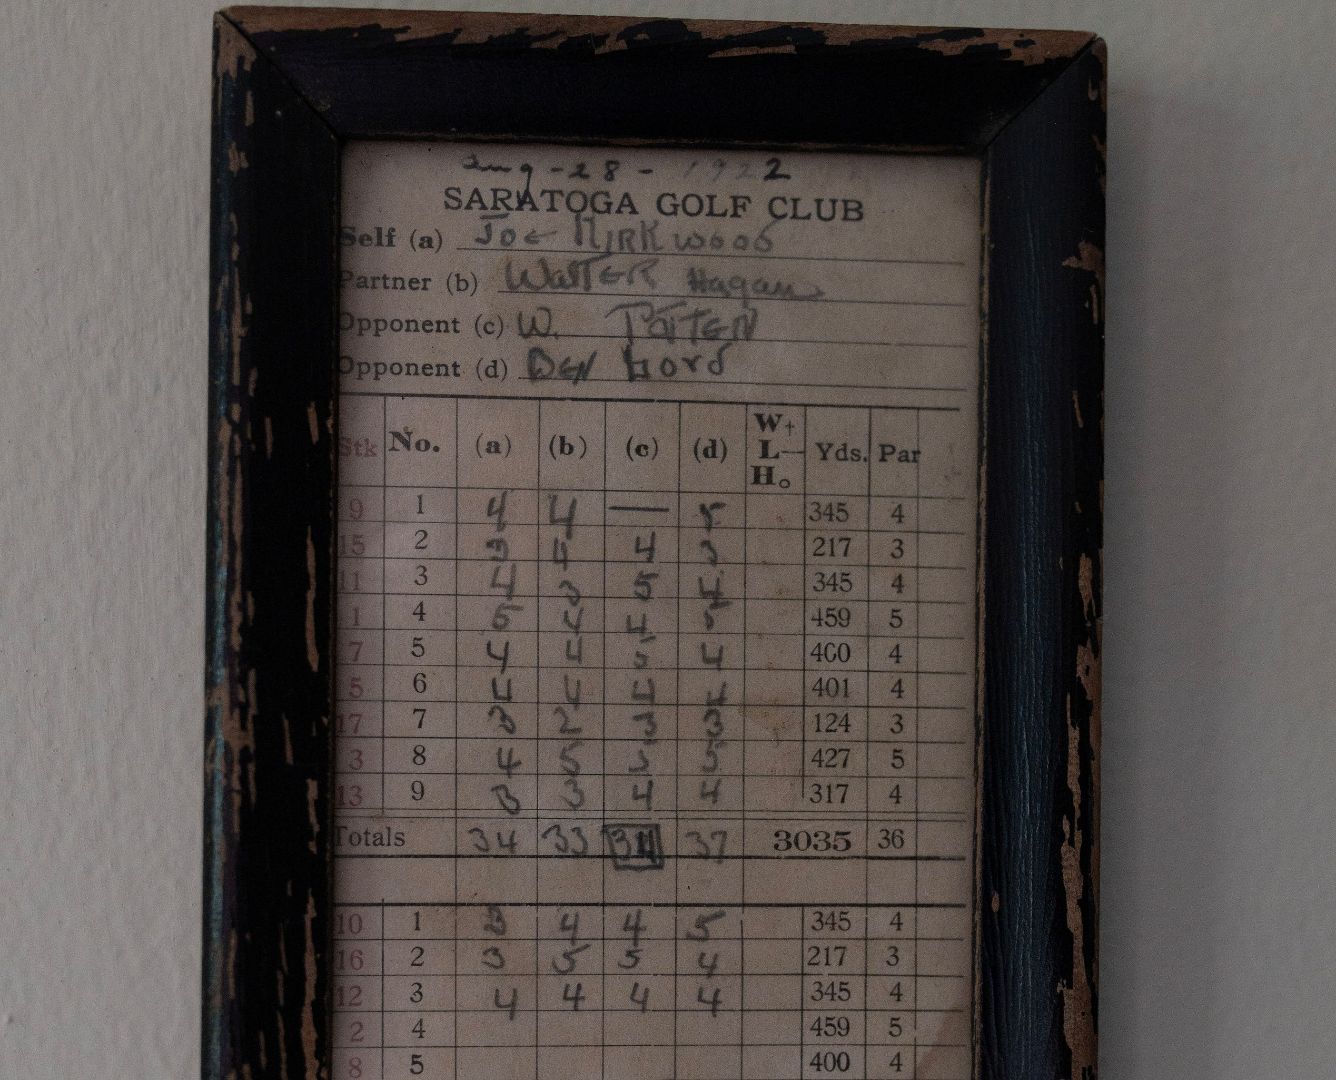 Aug-28-1922
SARATOGA GOLF CLUB
Self (a) JOE KIRKWOOD
Partner (b) WalTER Hagan
Opponent (c) W. PATTEN
Opponent (d) DEN
Stk No. (a) (b) (c) (d) W+ L— Ho Yds. Par
9 1 4 4 — 5 345 4
15 2 3 4 3 217 3
11 3 4 3 5 4 345 4
1 4 5 4 4 5 459 5
7 5 4 4 5 4 400 4
5 6 4 4 4 4 401 4
17 7 3 2 3 3 124 3
3 8 4 5 5 5 427 5
13 9 3 3 4 4 317 4
Totals 34 33 34 37 3035 36
10 1 3 4 4 5 345 4
16 2 3 5 5 4 217 3
12 3 4 4 4 4 345 4
2 4 459 5
8 5 400 4